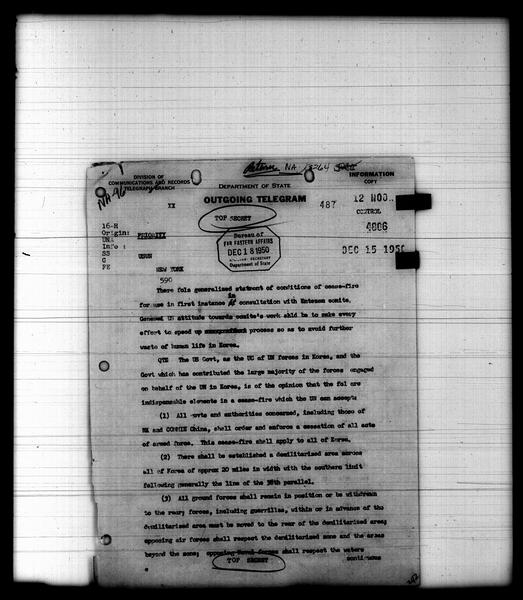 Return NA 12264
DIVISION OF
COMMUNICATIONS AND RECORDS
TELEGRAPH BRANCH
DEPARTMENT OF STATE
INFORMATION
COPY
OUTGOING TELEGRAM
XX
487
TOP SECRET
CONTROL
4806
16-H
Origin: PRIORITY
UNA
Info :
SS USUN
G
FE NEW YORK
Bureau of
FAR EASTERN AFFAIRS
DEC 18 1950
Department of State
DEC 15 1950
590
There fols generalized statement of conditions of cease-fire
in
for use in first instance consultation with Entezam comite.
General US attitude towards comite's work shld be to make every
effort to speed up process so as to avoid further
waste of human life in Korea.
QTE The US Govt, as the UC of UN forces in Korea, and the
Govt which has contributed the large majority of the forces engaged
on behalf of the UN in Korea, is of the opinion that the fol are
indispensable elements in a cease-fire which the UN can accept:
(1) All govts and authorities concerned, including those of
NK and COMMIE China, shall order and enforce a cessation of all acts
of armed force. This cease-fire shall apply to all of Korea.
(2) There shall be established a demilitarized area across
all of Korea of approx 20 miles in width with the southern limit
following generally the line of the 38th parallel.
(3) All ground forces shall remain in position or be withdrawn
to the rear; forces, including guerrillas, within or in advance of the
demilitarized area must be moved to the rear of the demilitarized area;
opposing air forces shall respect the demilitarized zone and the areas
beyond the zone; opposing naval forces shall respect the waters
contiguous
TOP SECRET